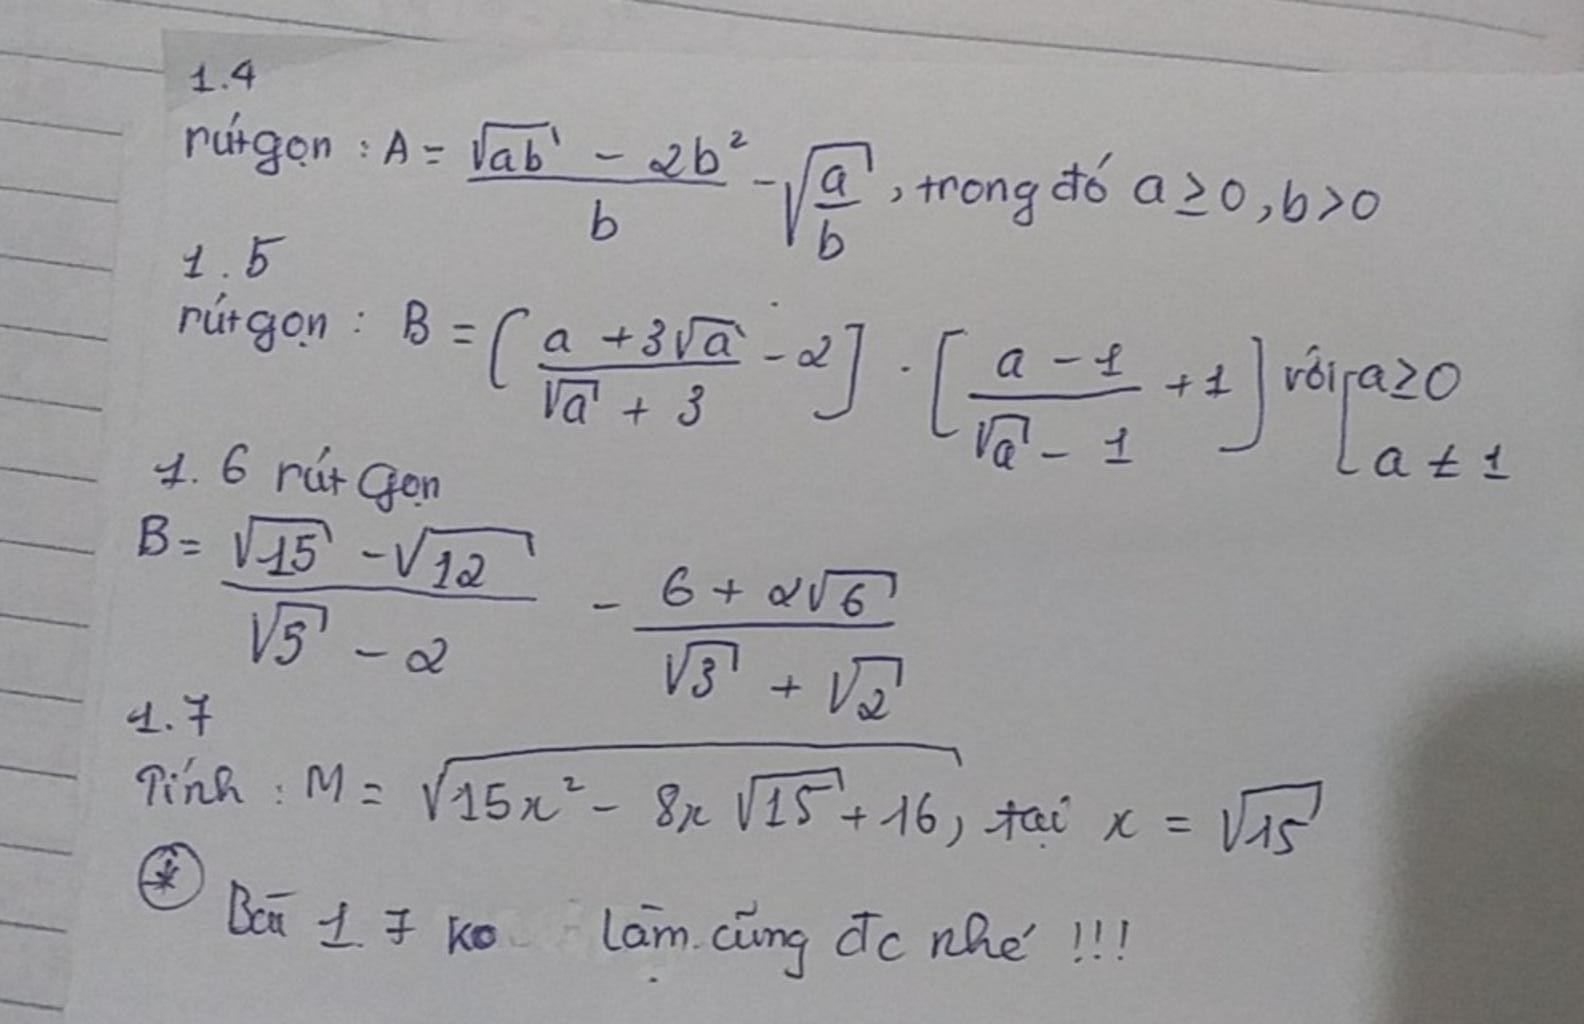 1.4
rút gọn : A = \frac{\sqrt{ab} - 2b²}{b} - \sqrt{\frac{a}{b}}, trong đó a ≥ 0, b > 0
1.5
rút gọn : B = [\frac{a + 3\sqrt{a}}{\sqrt{a} + 3} - 2] . [\frac{a - 1}{\sqrt{a} - 1} + 1] với [a ≥ 0
a ≠ 1
1.6 rút Gọn
B = \frac{\sqrt{15} - \sqrt{12}}{\sqrt{5} - 2} - \frac{6 + 2\sqrt{6}}{\sqrt{3} + \sqrt{2}}
1.7
Tính : M = \sqrt{15x² - 8x\sqrt{15} + 16}, tại x = \sqrt{15}
* Bài 1.7 ko làm cũng đc nhé !!!